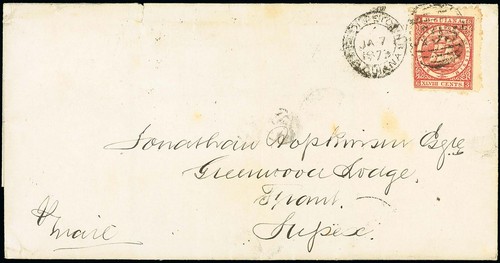 JA 7
1873
GUIANA
CENTS
Jonathan Hopkinson Esqre
Greenwood Lodge,
Frant.
Sussex.
mail